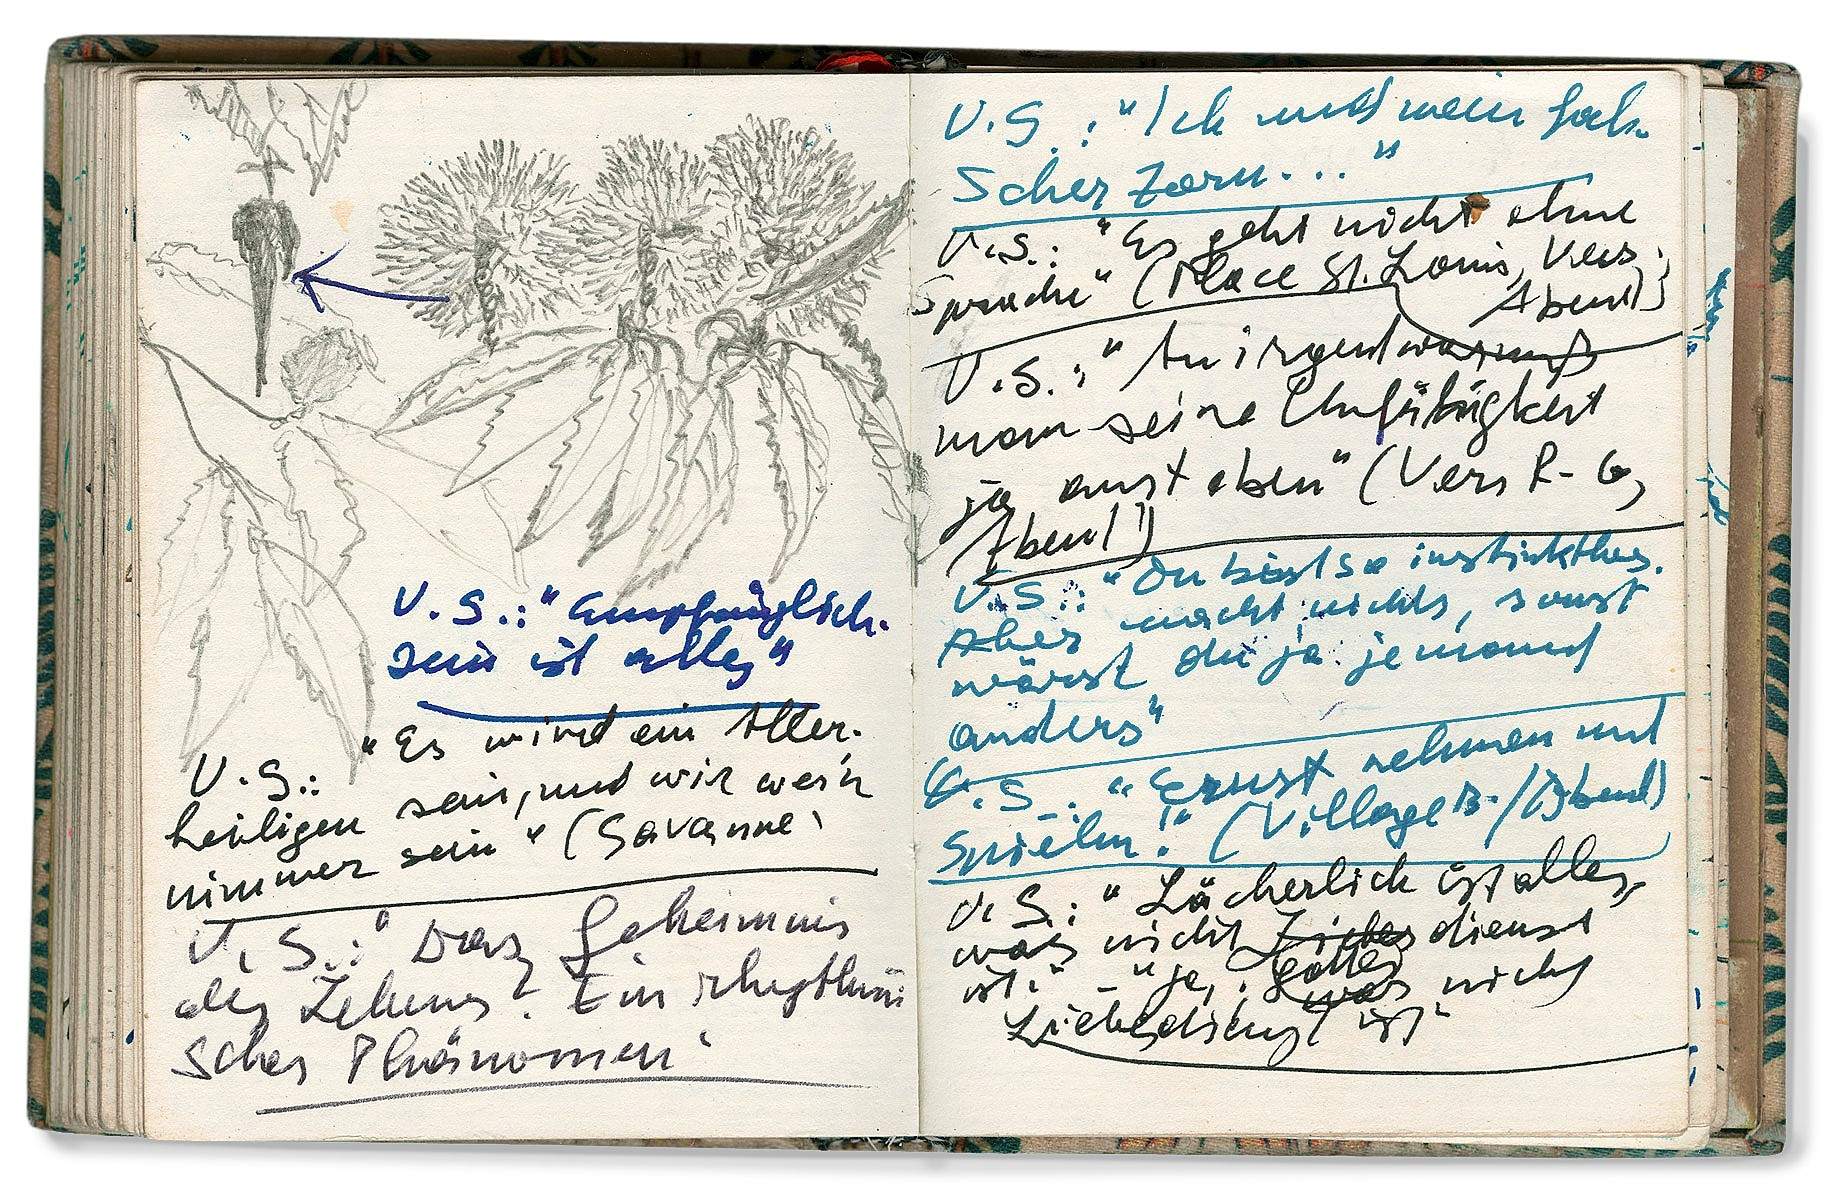 V.S.: "Empfänglich-
sein ist alles"
V.S.: "Es wird ein Aller-
heiligen sein, und wir wer'n
nimmer sein" (Savanne)
V.S.: "Das Geheimnis
des Lebens? Ein rhythmi
sches Phänomen"
V.S.: "Ich und mein fal-
scher Zorn..."
V.S.: "Es geht nicht ohne
Sprache" (Place St. Louis, Vers.,
Abend)
V.S.: "An irgendwas muß
man seine Unfähigkeit
ja ausüben" (Vers R-G,
Abend)
V.S.: "Du bist so instinktlos.
Aber macht nichts, sonst
wärst du ja jemand
anders"
V.S.: "Ernst nehmen und
spielen!" (Village B./Abend)
V.S.: "Lächerlich ist alles,
was nicht Liebesdienst
ist." – "Ja, was nicht
Liebesdienst ist"